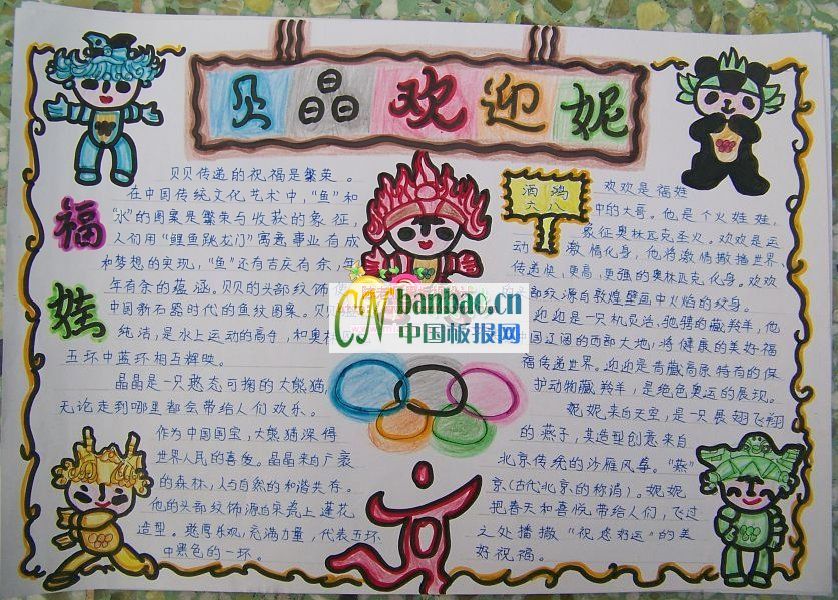 贝晶欢迎妮
福娃
贝贝传递的祝福是繁荣。
在中国传统文化艺术中，“鱼”和
“水”的图案是繁荣与收获的象征，
人们用“鲤鱼跳龙门”寓意事业有成
和梦想的实现，“鱼”还有吉庆有余，年
年有余的蕴涵。贝贝的头部纹饰使
中国新石器时代的鱼纹图案。贝贝
纯洁，是水上运动的高手，和奥林
五环中蓝环相互辉映。
晶晶是一只憨态可掬的大熊猫，
无论走到哪里都会带给人们欢乐。
作为中国国宝，大熊猫深得
世界人民的喜爱。晶晶来自广袤
的森林，人与自然的和谐共存。
他的头部纹饰源自宋瓷上莲花
造型。憨厚乐观，充满力量，代表五环
中黑色的一环。
欢欢是福娃
中的大哥。他是个火娃娃，
象征奥林匹克圣火。欢欢是运
动激情化身，他将激情撒播世界，
传递快，更高，更强的奥林匹克化身。欢欢
头部纹源自敦煌壁画中火焰的纹身。
迎迎是一只机灵活，驰骋的藏羚羊，他
中国辽阔的西部大地，将健康的美好福
福传递世界。迎迎是青藏高原特有的保
护动物藏羚羊，是绝色奥运的展现。
妮妮来自天空，是一只展翅飞翔
的燕子，其造型创意来自
北京传统的沙雁风筝。“燕”
京（古代北京的称谓）。妮妮
把春天和喜悦带给人们，飞过
之处播撒“祝您好运”的美
好祝福。
CN banbao.cn
中国板报网